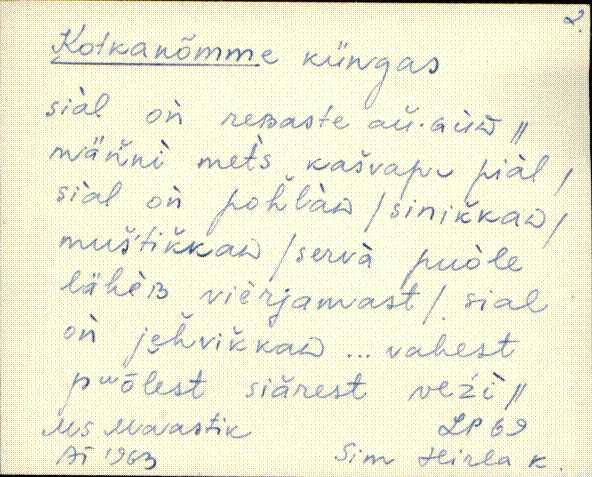 2.
Kotkanõmme küngas
siàl oǹ reʙaste au̬.guᴅ //
männ̆i mets kašvapᴜ piàl /
siàl oǹ poȟlaᴅ / sinikkaᴅ /
mušt́ikkaᴅ / servà puòle
lähèʙ vierjamast / sial
oǹ jĕhvikkaᴅ ... vahest
puōlest siarest vežì //
MS Maastik LP 69
AT 1963 Sim Hirla k.